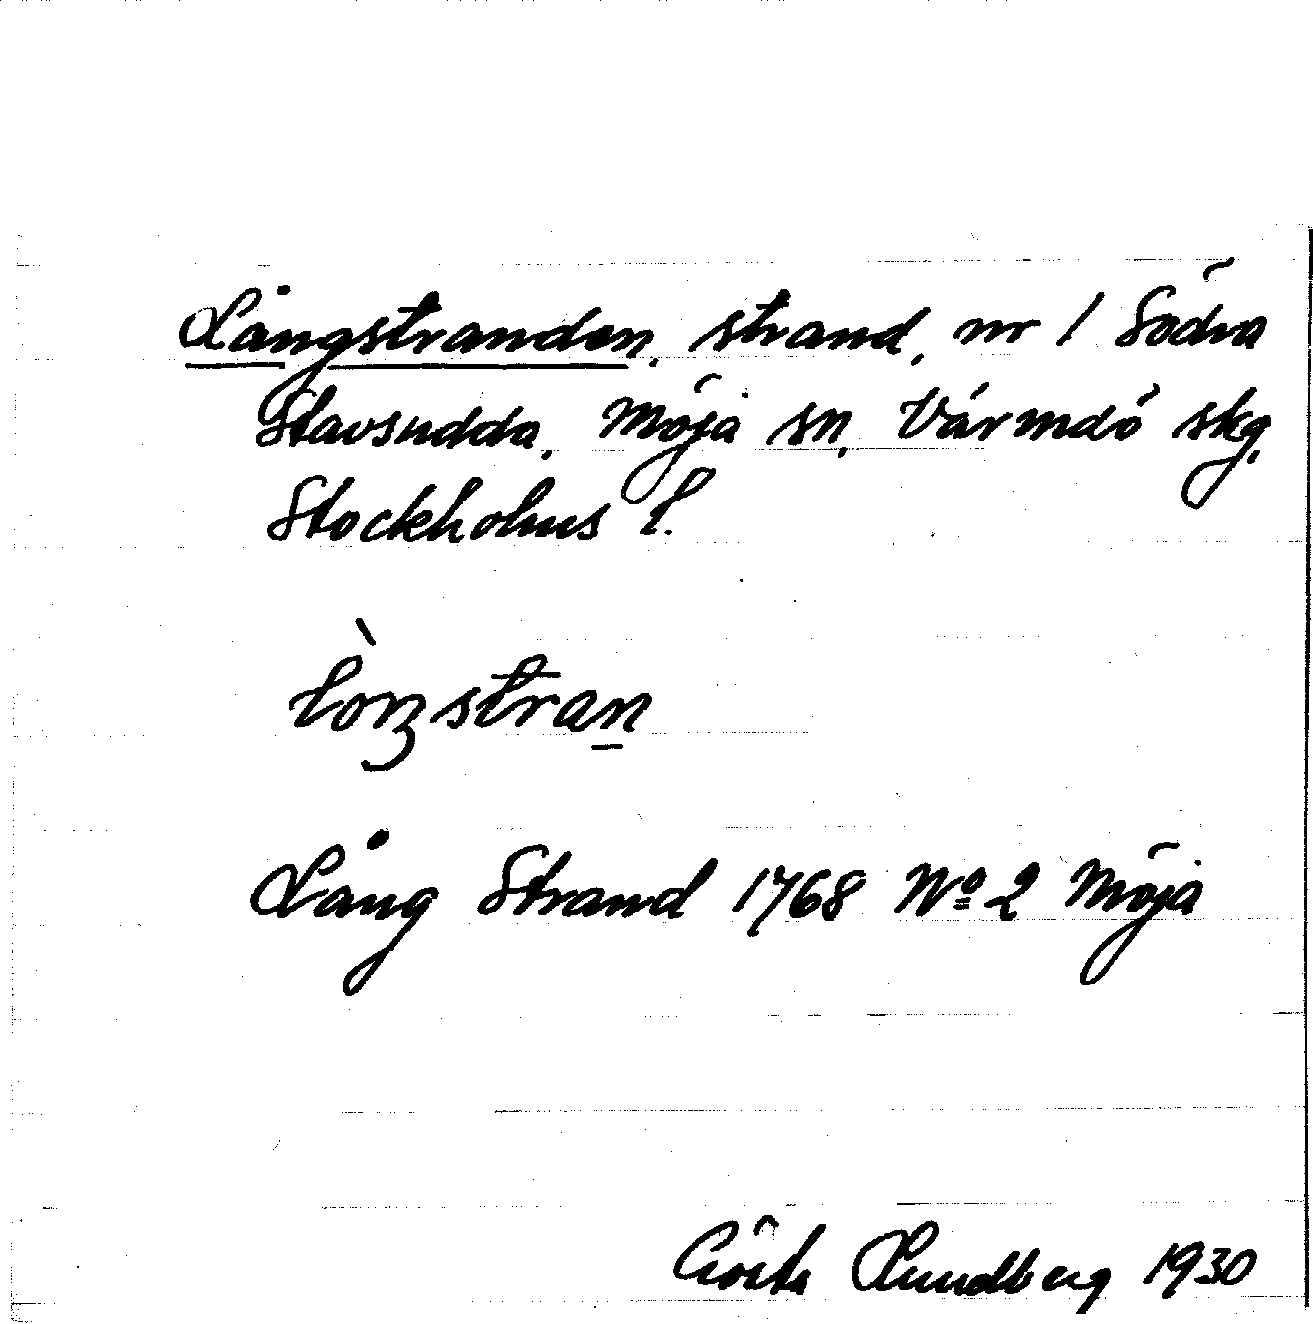 Långstranden, strand, nr 1 Södra
Stavsudda, Möja sn, Värmdö skg,
Stockholms l.
lòŋstran
Lång Strand 1768 Nº 2 Möja
Gösta Lundberg 1930